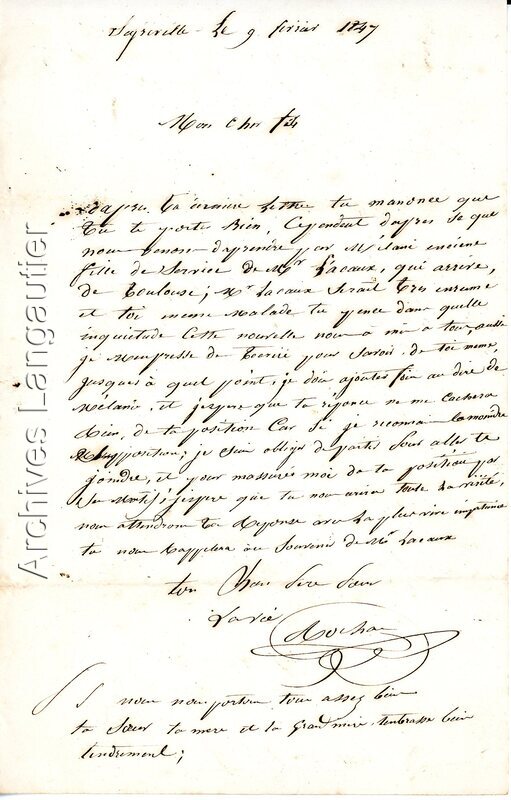 Le 9 février 1847
Mon cher fils
d'apres ta derniere Lettre tu manonce que
tu te porte Bien, Cependent dapres se que
nous venons daprendre par Melanie enciene
fille de Service de Mr Lacaux, qui arrive,
de Toulouse; Mr Lacaux serait tres enrume
et toi meme Malade tu pence dans quelle
inquietude cette nouvelle nous a mis a tous, aussi
je Mempresse de tecrire pour Savoir de toi meme,
jusques à quel point, je dois ajouter foi au dire de
Mélanie, et j'espere que ta réponce ne me cachera
Rien, de ta position Car si je reconnai la moindre
supposition; je serai obliger de partir pour aller te
joindre, et pour massurer moi de ta position par
j'espere que tu nous ecrira toute la vérité,
nous attendrons ta Reponse avec La plus vive impatience
tu nous Rappelera au Souvenir de Mr Lacaux
ton Bon Pere
Rochas
nous nous portons tous assez bien
ta Soeur ta mere et ta Grand mere tenbrasse bien
tendrement;
Archives Langautier